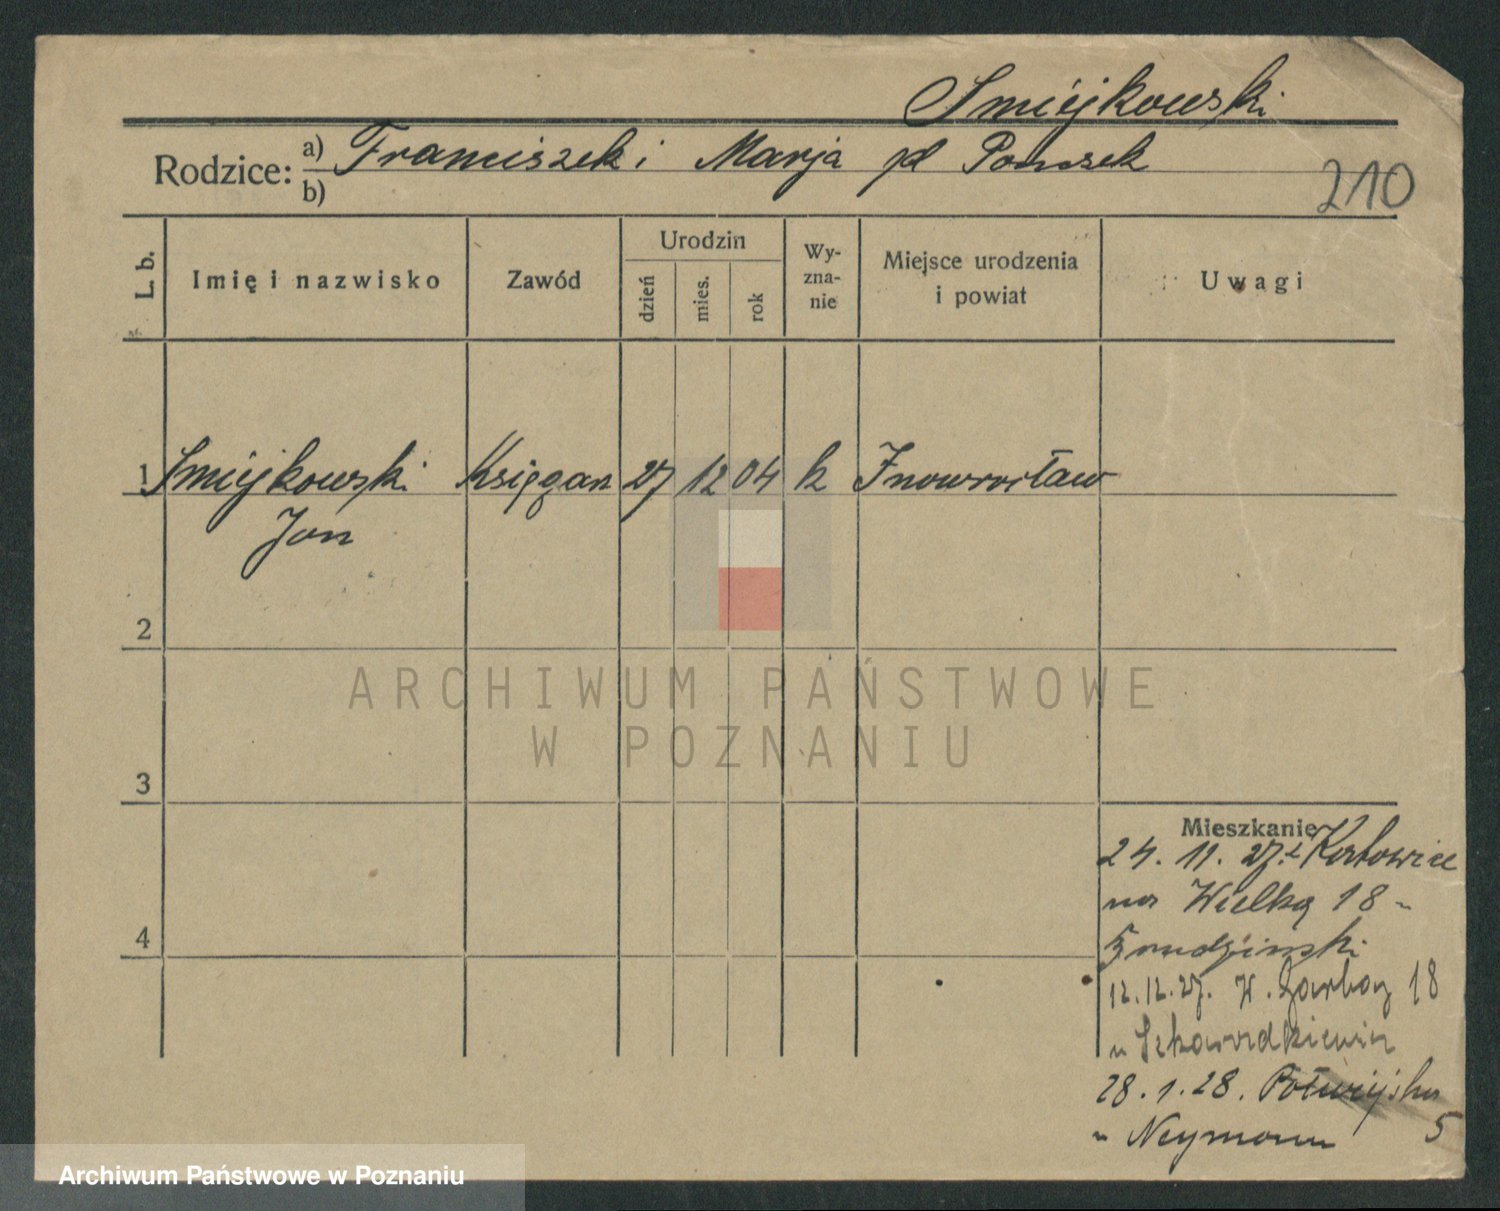 Smiejkowski
Rodzice: a) Franciszek i Marja zd
b)
210
L. b.
Imię i nazwisko
Zawód
Urodzin
dzień
mies.
rok
Wy-
zna-
nie
Miejsce urodzenia
i powiat
Uwagi
1 Smiejkowski Księgarz 27 12 04 k Inowrocław
Jan
2
ARCHIWUM PAŃSTWOWE
W POZNANIU
3
Mieszkanie
24. 11. 27. z Katowice
na Wielką 18
4
12.12.27. W. Garbary 18
u
28.1.28. Półwiejska
u Neymann 5
Archiwum Państwowe w Poznaniu